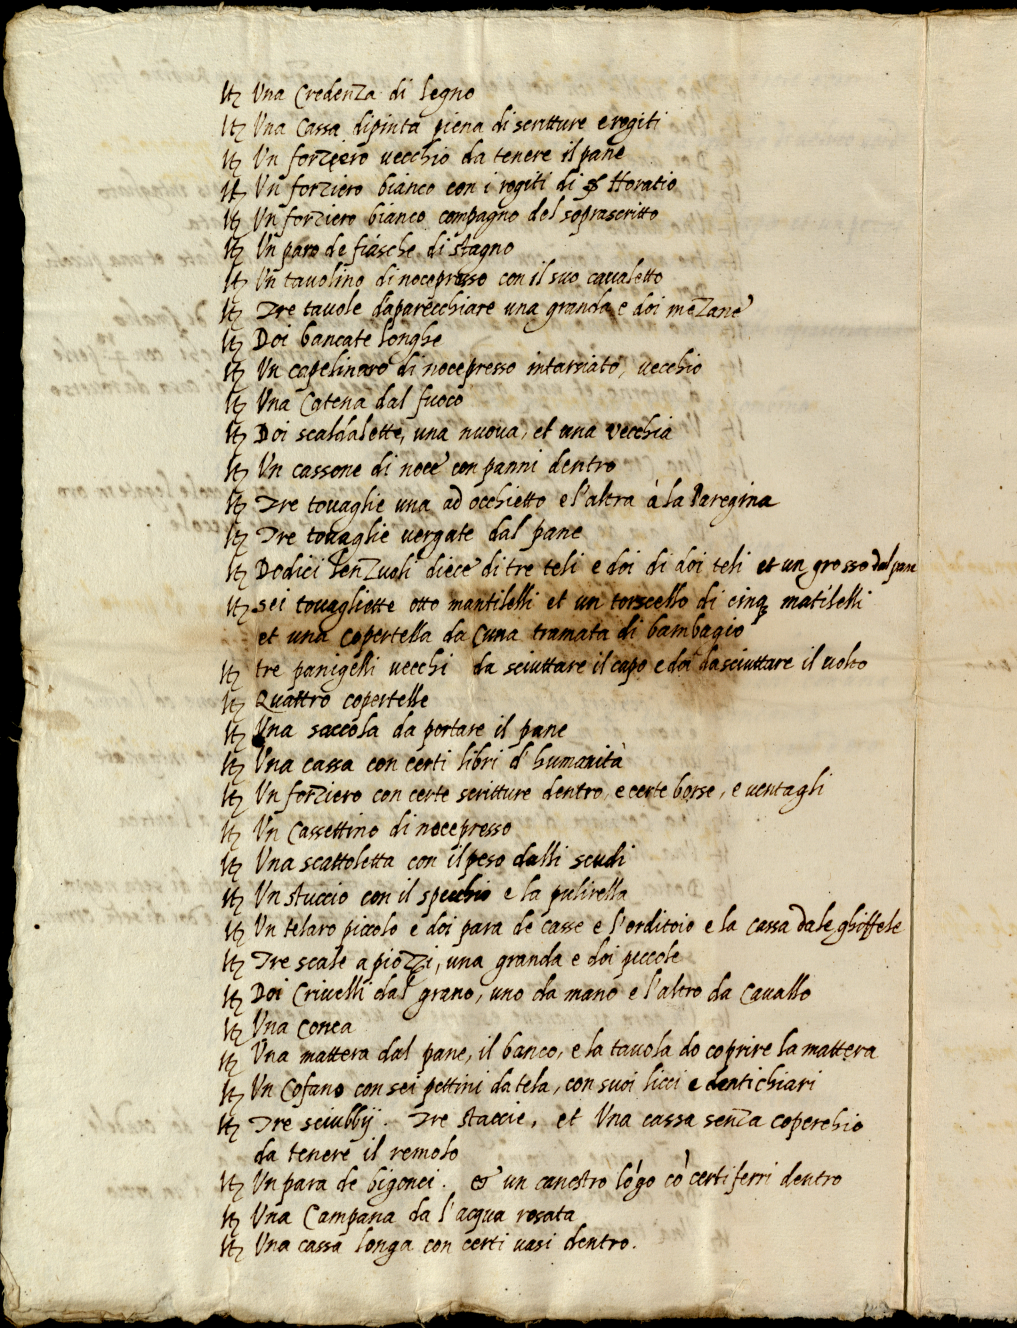 Itz Una Credenza di legno
Itz Una Cassa dipinta piena di scritture e rogiti
Itz Un forziero vecchio da tenere il pane
Itz Un forziero bianco con i rogiti di Horatio
Itz Un forziero bianco compagno del soprascritto
Itz Un paro de fiasche di stagno
Itz Un tavolino di nocepresso con il suo cavaletto
Itz Tre tavole d'aparecchiare una granda e doi mezane
Itz Doi bancate longhe
Itz Un capelinaro di nocepresso intarsiato, vecchio
Itz Una Catena dal fuoco
Itz Doi scaldalette, una nuova, et una vecchia
Itz Un cassone di noce con panni dentro
Itz Tre tovaglie una ad occhietto e l'altra à la Paregina
Itz Tre tovaglie vergate dal pane
Itz Dodici lenzuoli diece di tre teli e doi di doi teli et un grosso dal pane
Itz sei tovagliette otto mantilelli et un torscello di cinq matilelli
et una Copertella da Cuna tramata di bambagio
Itz tre panigelli vecchi da sciuttare il capo e doi da sciuttare il volto
Itz Quattro copertelle
Itz Una saccola da portare il pane
Itz Una cassa con certi libri d'humanità
Itz Un forziero con certe scritture dentro, e certe borse, e ventagli
Itz Un Cassettino di nocepresso
Itz Una scattoletta con il peso dalli scudi
Itz Un stuccio con il specchio e la pulirella
Itz Un telaro piccolo e doi para de casse e l'orditoio e la cassa dale ghiffele
Itz Tre scale a piozzi, una granda e doi piccole
Itz Doi Crivelli dal grano, uno da mano e l'altro da Cavallo
Itz Una Conca
Itz Una mattera dal pane, il banco, e la tavola do coprire la mattera
Itz Un Cofano con sei pettini da tela, con suoi licci e denti chiari
Itz Tre sciubbij. Tre staccie, et Una cassa senza coperchio
da tenere il remolo
Itz Un para de bigonci. et un canestro lógo có certi ferri dentro
Itz Una Campana da l'acqua rosata
Itz Una cassa longa con certi vasi dentro.